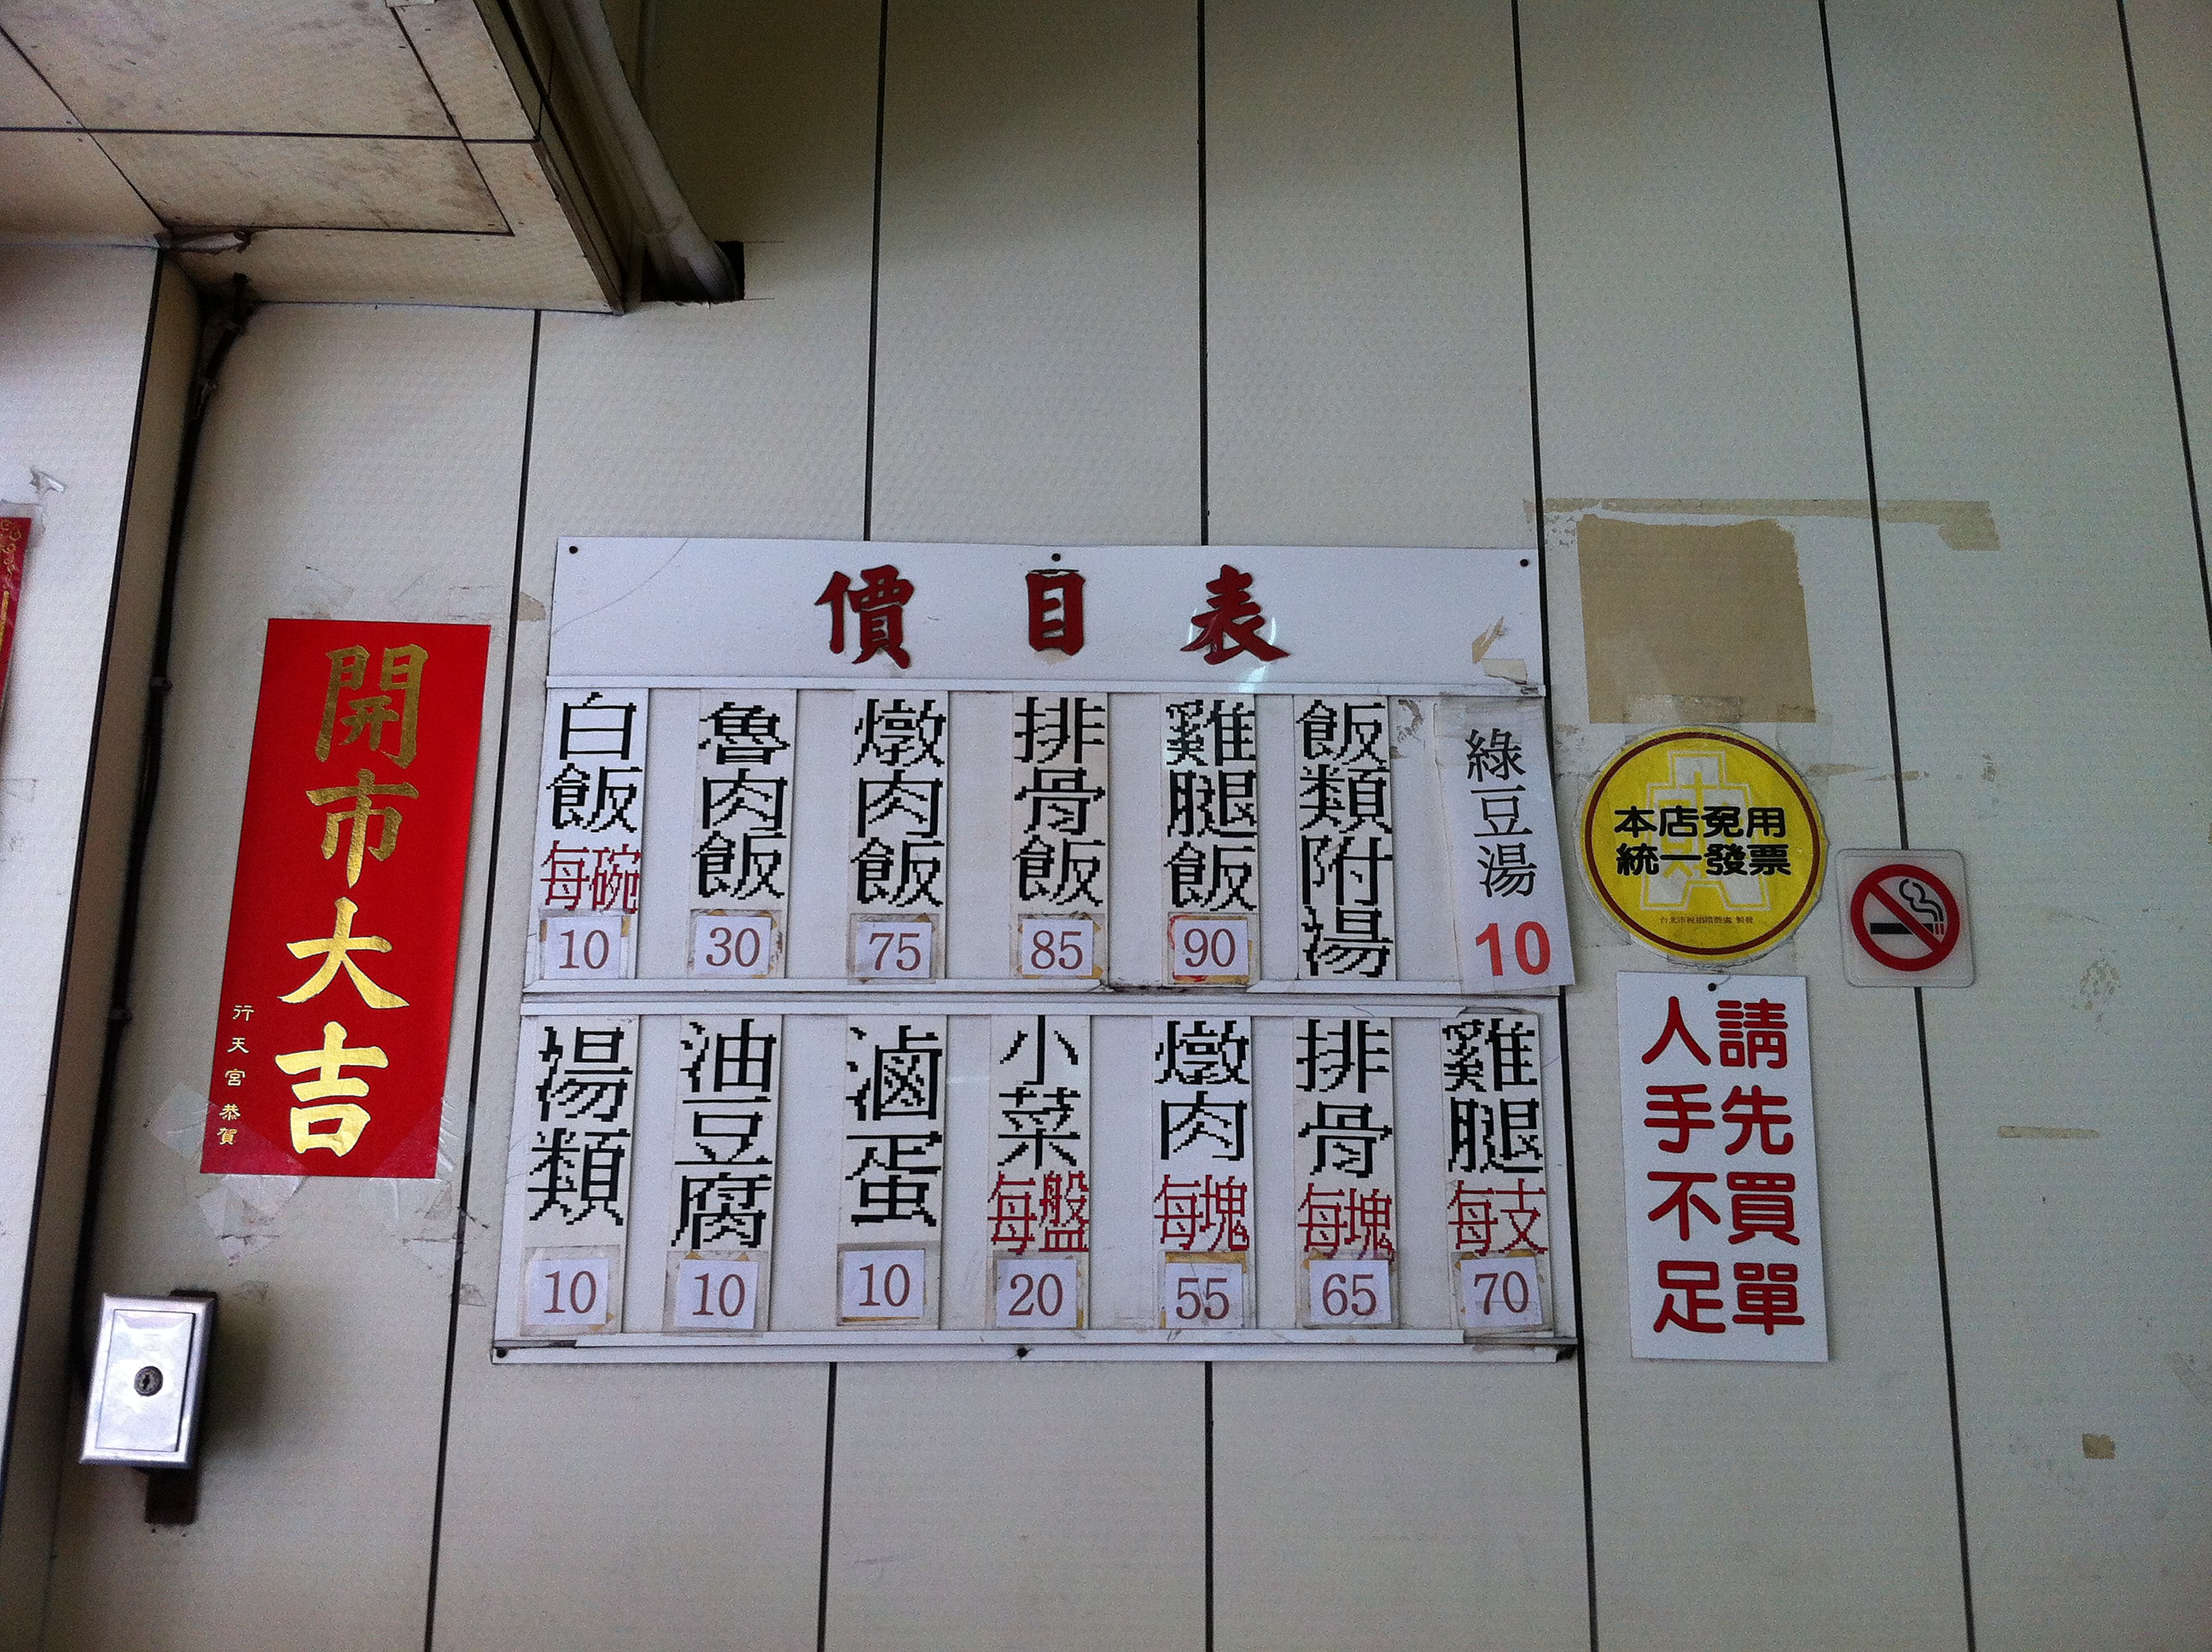 價目表
白飯每碗
10
魯肉飯
30
燉肉飯
75
排骨飯
85
雞腿飯
90
飯類附湯
綠豆湯
10
湯類
10
油豆腐
10
滷蛋
10
小菜每盤
20
燉肉每塊
55
排骨每塊
65
雞腿每支
70
開市大吉
行天宮恭賀
本店免用
統一發票
請先買單
人手不足